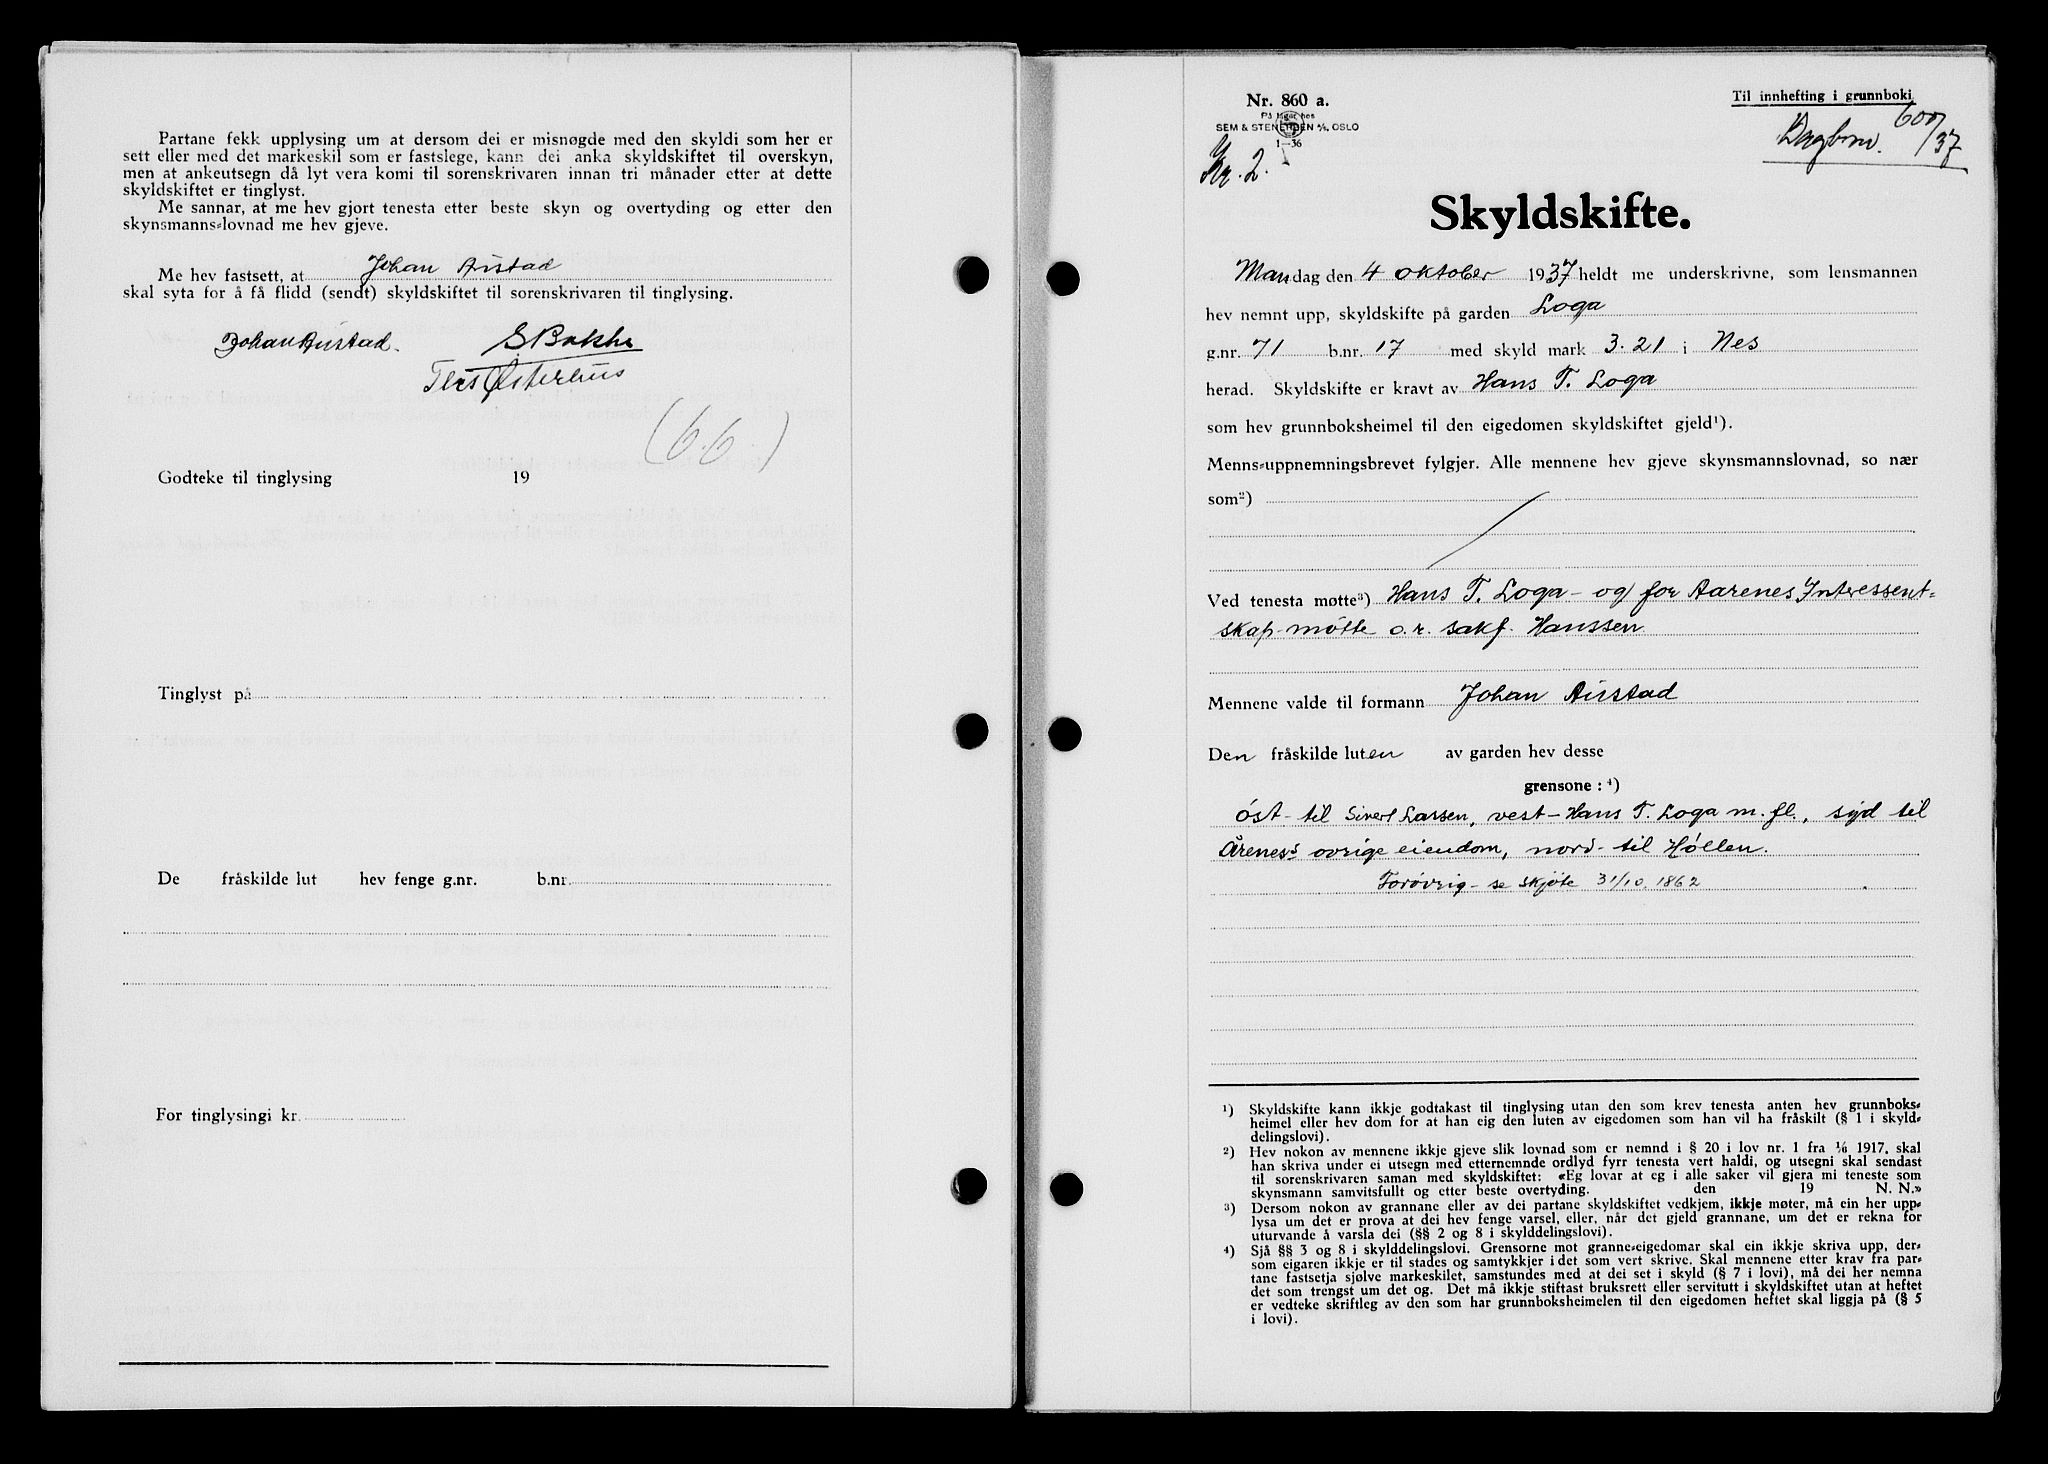 Partane fekk upplysing um at dersom dei er misnøgde med den skyldi som her er
sett eller med det markeskil som er fastslege, kann dei anka skyldskiftet til overskyn,
men at ankeutsegn då lyt vera komi til sorenskrivaren innan tri månader etter at dette
skyldskiftet er tinglyst.
Me sannar, at me hev gjort tenesta etter beste skyn og overtyding og etter den
skynsmanns-lovnad me hev gjeve.
Me hev fastsett, at Johan Austad
skal syta for å få flidd (sendt) skyldskiftet til sorenskrivaren til tinglysing.
Johan Austad. S Bakke
Østerhus
(6.6.)
Godteke til tinglysing 19
Tinglyst på
De fråskilde lut hev fenge g.nr. b.nr.
For tinglysingi kr.
Nr. 860 a.
På lager hos
SEM & STENERSEN A/S, OSLO
1—36
Nr. 2.
Til innhefting i grunnboki
Dagbnr. 600/37
Skyldskifte.
Mandag den 4 oktober 1937 heldt me underskrivne, som lensmannen
hev nemnt upp, skyldskifte på garden Loga
g.nr. 71 b.nr. 17 med skyld mark 3.21 i Nes
herad. Skyldskifte er kravt av Hans T. Loga
som hev grunnboksheimel til den eigedomen skyldskiftet gjeld¹).
Menns-uppnemningsbrevet fylgjer. Alle mennene hev gjeve skynsmannslovnad, so nær
som²)
Ved tenesta møtte³) Hans T. Loga - og for Aarenes Interessent-
skap møtte o.r. sakf. Hanssen
Mennene valde til formann Johan Austad
Den fråskilde luten av garden hev desse
grensone: ⁴)
öst - til Sivert Larsen, vest - Hans T. Loga m. fl., syd til
Årenes's ovrige eiendom, nord - til Høllen.
Forøvrig - se skjöte 31/10. 1862
¹) Skyldskifte kann ikkje godtakast til tinglysing utan den som krev tenesta anten hev grunnboks-
heimel eller hev dom for at han eig den luten av eigedomen som han vil ha fråskilt (§ 1 i skyld-
delingslovi).
²) Hev nokon av mennene ikkje gjeve slik lovnad som er nemnd i § 20 i lov nr. 1 fra 1/6 1917, skal
han skriva under ei utsegn med etternemnde ordlyd fyrr tenesta vert haldi, og utsegni skal sendast
til sorenskrivaren saman med skyldskiftet: «Eg lovar at eg i alle saker vil gjera mi teneste som
skynsmann samvitsfullt og etter beste overtyding. den 19 N. N.»
³) Dersom nokon av grannane eller av dei partane skyldskiftet vedkjem, ikkje møter, må ein her upp-
lysa um det er prova at dei hev fenge varsel, eller, når det gjeld grannane, um det er rekna for
uturvande å varsla dei (§§ 2 og 8 i skylddelingslovi).
⁴) Sjå §§ 3 og 8 i skylddelingslovi. Grensorne mot granne-eigedomar skal ein ikkje skriva upp, der-
som eigaren ikkje er til stades og samtykkjer i det som vert skrive. Skal mennene etter krav fra par-
tane fastsetja sjølve markeskilet, samstundes med at dei set i skyld (§ 7 i lovi), må dei her nemna
det som trengst um det og. Det må ikkje stiftast bruksrett eller servitutt i skyldskiftet utan at heftet
er vedteke skriftleg av den som har grunnboksheimelen til den eigedomen heftet skal liggja på (§ 5
i lovi).